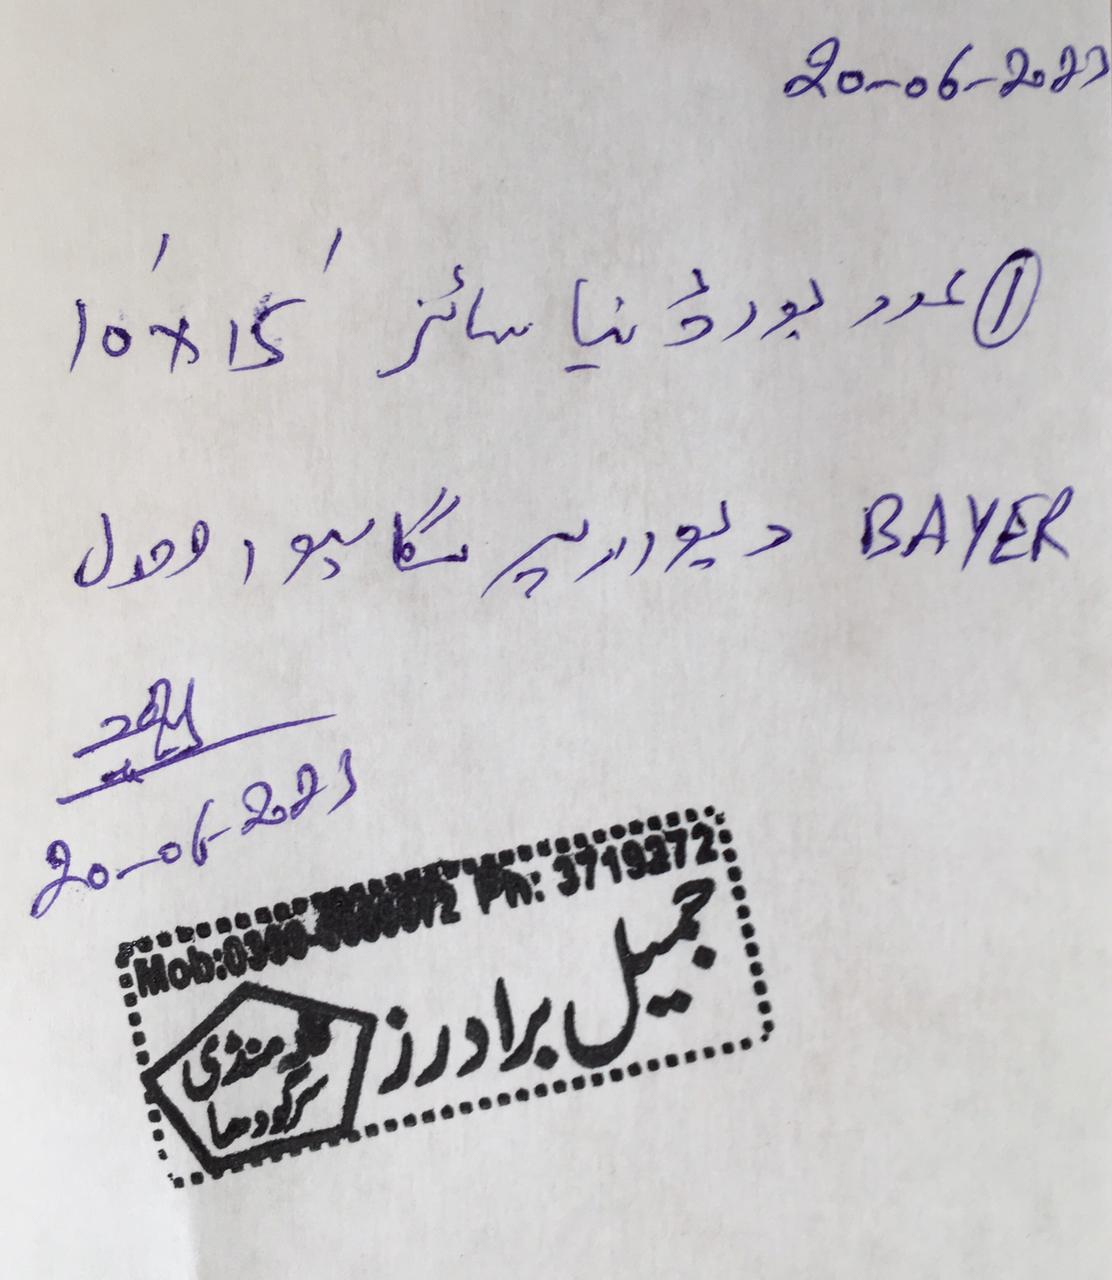 20-06-2023
① عدد بورڈ نیا سائز 10'x15'
BAYER دیوار پر لگا ہوا وصول
20-06-2023
Ph: 3719272
جمیل برادرز
منڈی
سرگودھا